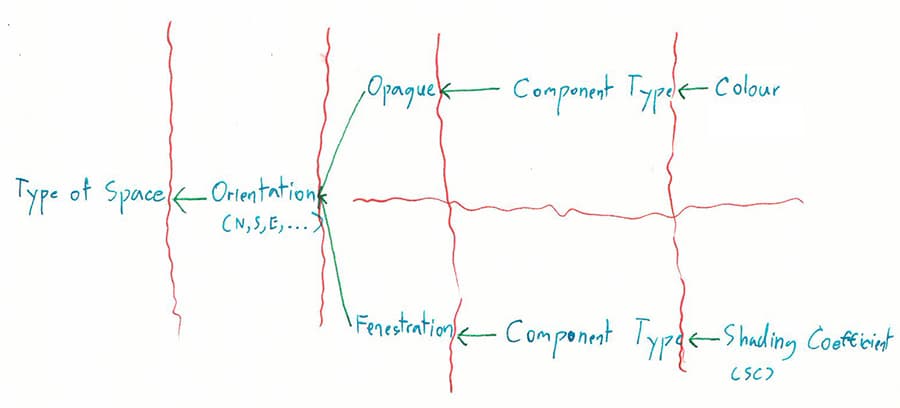 Opaque
Component Type
Colour
Type of Space
Orientation
(N,S,E,...)
Fenestration
Component Type
Shading Coefficient
(SC)